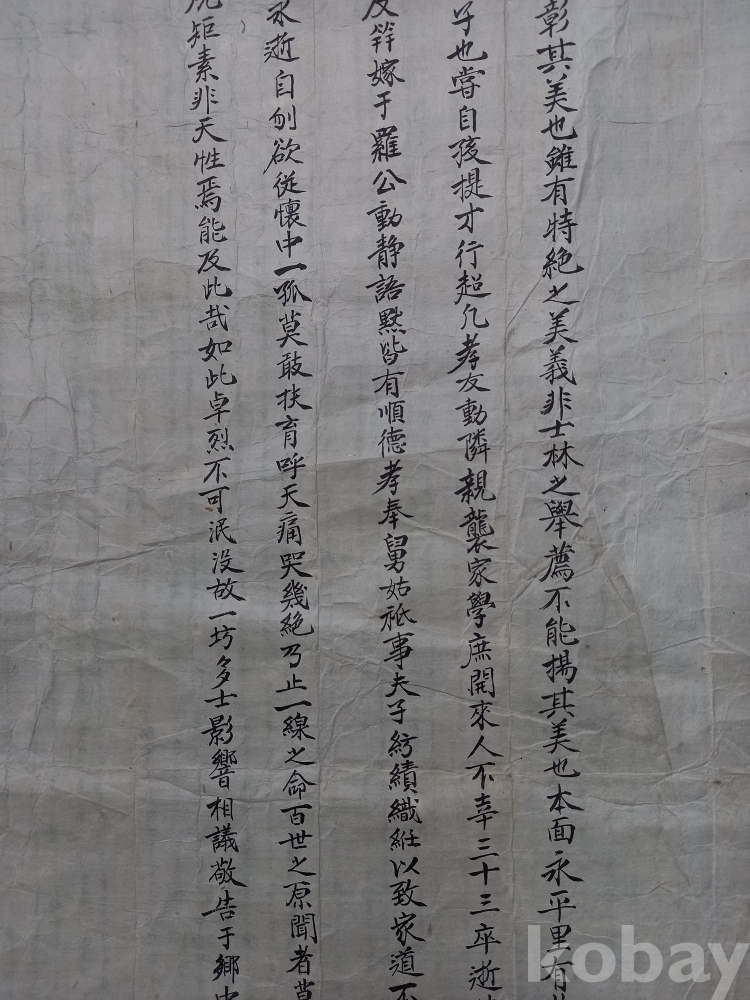 彰其美也雖有特絶之美義非士林之擧薦不能揚其美也本面永平里有
子也嘗自孩提才行超凡孝友動隣親襲家學庶開來人不幸三十三卒逝
及笄嫁于羅公動静語黙皆有順德孝奉舅姑祗事夫子紡績織紝以致家道不
永逝自刎欲從懷中一孤莫敢扶育呼天痛哭幾絶乃止一線之命百世之原聞者莫
矩素非天性焉能及此哉如此卓烈不可泯没故一坊多士影響相議敬告于鄉中
kobay